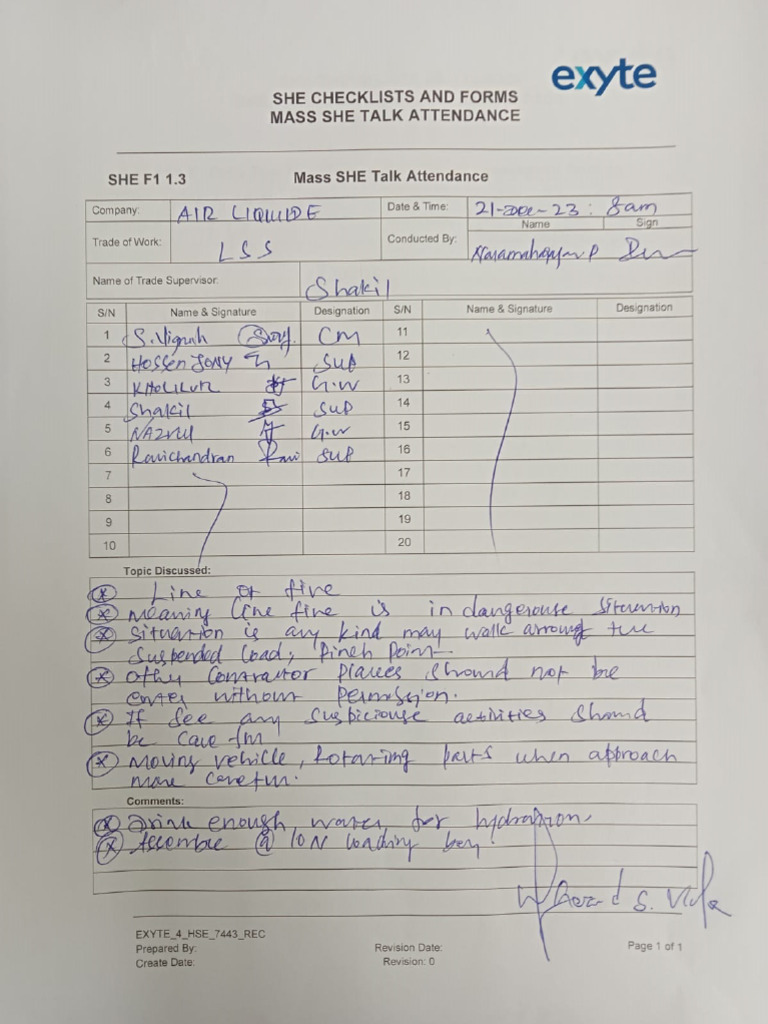 exyte
SHE CHECKLISTS AND FORMS
MASS SHE TALK ATTENDANCE
SHE F1 1.3 Mass SHE Talk Attendance
Company: AIR LIQUIDE Date & Time: 21- -23 : 8am
Name Sign
Trade of Work: LSS Conducted By:
Name of Trade Supervisor: Shakil
S/N Name & Signature Designation S/N Name & Signature Designation
1 S. Vignah CM 11
2 Hossen Jony SUP 12
3 KHOLILUR G.W 13
4 Shakil SUP 14
5 NAZRUL G.W 15
6 Ravichandran Ravi SUP 16
7 17
8 18
9 19
10 20
Topic Discussed:
Line of fire
meaning line fire is in dangerouse situvation
situvation is any kind may walk arroung the
suspended load, Pinch Point
other contractor places should not be
enter without permission.
If see any suspiciouse activities should
be care
moving vehicle, Rotarimg parts when approach
more careful.
Comments:
Drink enough water for hydration.
Assemble @ 10N loading bay
EXYTE_4_HSE_7443_REC
Prepared By: Revision Date: Page 1 of 1
Create Date: Revision: 0